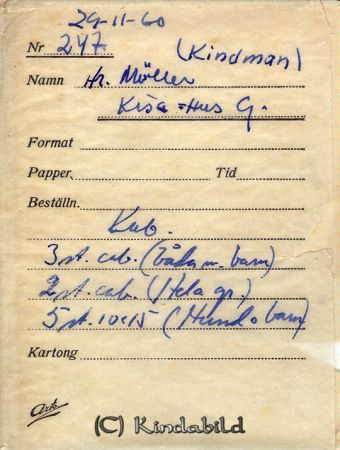 29-11-60
Nr 247 (Kindman)
Namn Hr. Möller
Kisa-Hus G.
Format
Papper Tid
Beställn.
Kab.
3 st. cab. (båda m. barn)
2 st. cab. (Hela gr.)
5 st. 10x15 (Hund o barn)
Kartong
Ark
(C) Kindabild